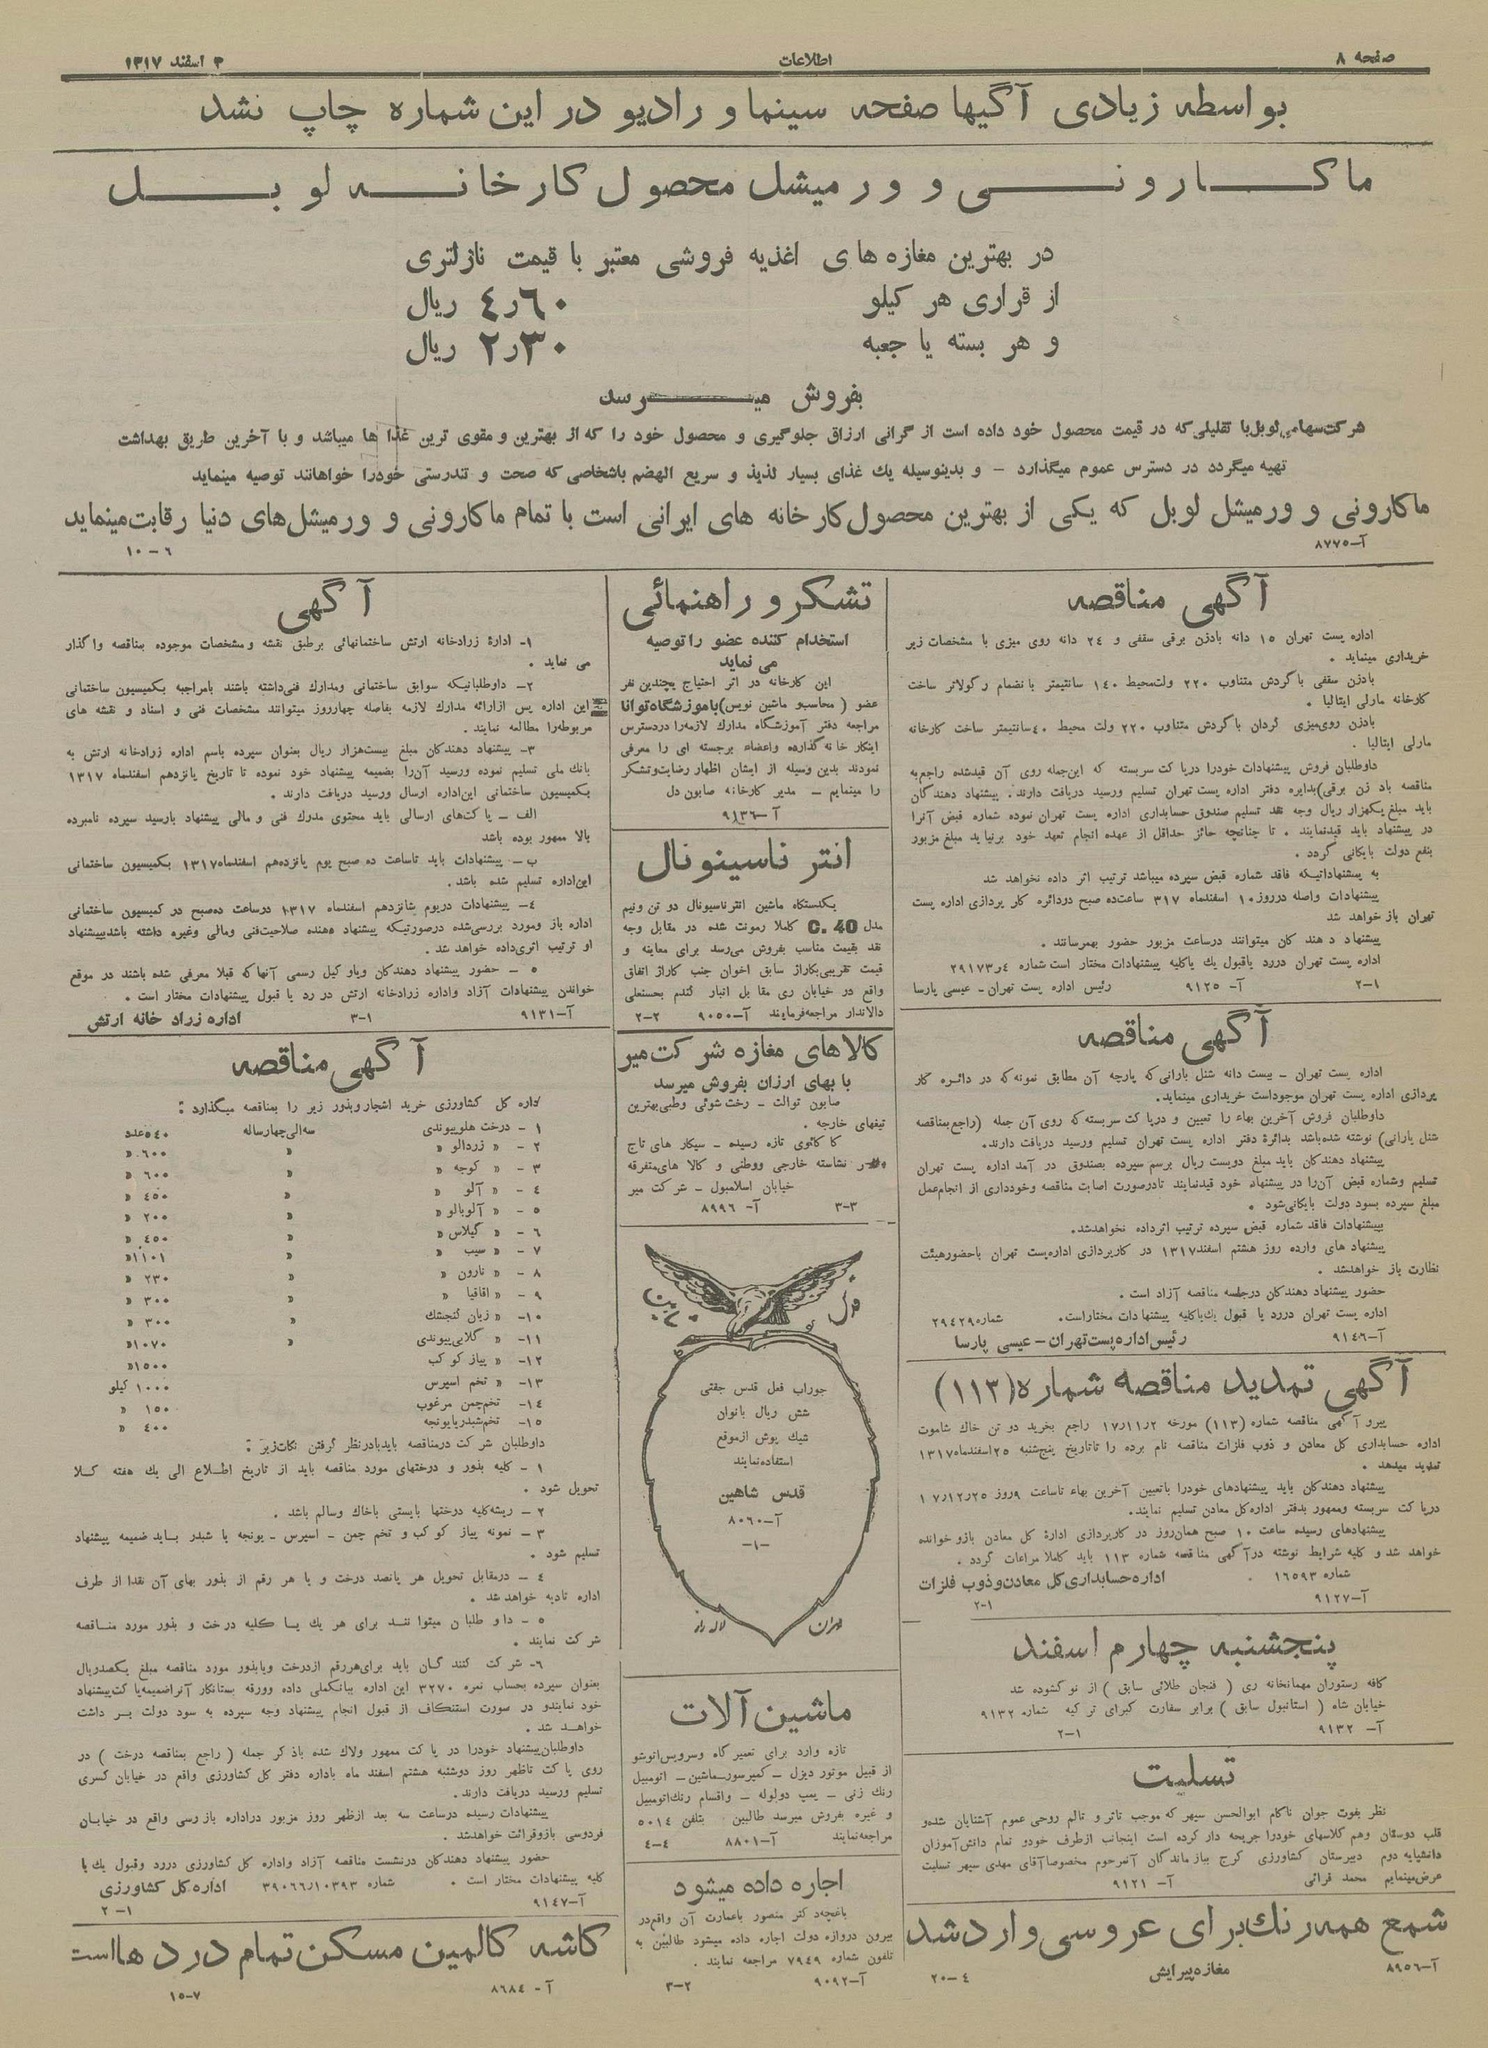 صفحه ۸
اطلاعات
۳ اسفند ۱۳۱۷
بواسطه زیادی آگیها صفحه سینما و رادیو در این شماره چاپ نشد
ماکارونی و ورمیشل محصول کارخانه لوبل
در بهترین مغازه های اغذیه فروشی معتبر با قیمت نازلتری
از قراری هر کیلو ۴ر۶۰ ریال
و هر بسته یا جعبه ۲ر۳۰ ریال
بفروش میرسد
شرکت سهامی لوبل با تقلیلی که در قیمت محصول خود داده است از گرانی ارزاق جلوگیری و محصول خود را که از بهترین و مقوی ترین غذا ها میباشد و با آخرین طریق بهداشت
تهیه میگردد در دسترس عموم میگذارد - و بدینوسیله یك غذای بسیار لذیذ و سریع الهضم باشخاصی که صحت و تندرستی خودرا خواهانند توصیه مینماید
ماکارونی و ورمیشل لوبل که یکی از بهترین محصول کارخانه های ایرانی است با تمام ماکارونی و ورمیشل های دنیا رقابت مینماید
آ-۸۷۷۵
۶-۱۰
آگهی مناقصه
اداره پست تهران ۱۵ دانه بادزن برقی سقفی و ۲۴ دانه روی میزی با مشخصات زیر
خریداری مینماید .
بادزن سقفی با گردش متناوب ۲۲۰ ولت محیط ۱۴۰ سانتیمتر بانضمام رگولاتر ساخت
کارخانه مارلی ایتالیا .
بادزن روی میزی گردان با گردش متناوب ۲۲۰ ولت محیط ۴۰ سانتیمتر ساخت کارخانه
مارلی ایتالیا .
داوطلبان فروش پیشنهادات خودرا درپاکت سربسته که این جمله روی آن قیدشده راجع به
مناقصه باد زن برقی) بدایره دفتر اداره پست تهران تسلیم ورسید دریافت دارند. پیشنهاد دهندگان
باید مبلغ یکهزار ریال وجه نقد تسلیم صندوق حسابداری اداره پست تهران نموده شماره قبض آنرا
در پیشنهاد باید قیدنمایند . تا چنانچه حائز حداقل از عهده انجام تعهد خود برنیاید مبلغ مزبور
بنفع دولت بایگانی گردد .
به پیشنهاداتیکه فاقد شماره قبض سپرده میباشد ترتیب اثر داده نخواهد شد
پیشنهادات واصله درروز ۱۰ اسفندماه ۳۱۷ ساعت ده صبح دردائره کار پردازی اداره پست
تهران باز خواهد شد
پیشنهاد دهند کان میتوانند درساعت مزبور حضور بهمرسانند .
اداره پست تهران دررد یاقبول یك یاکلیه پیشنهادات مختار است شماره ۲۹۱۷۳ر۴
۱-۲ آ- ۹۱۲۵ رئیس اداره پست تهران - عیسی پارسا
آگهی مناقصه
اداره پست تهران - بیست دانه شنل بارانی که پارچه آن مطابق نمونه که در دائره کار
پردازی اداره پست تهران موجوداست خریداری مینماید.
داوطلبان فروش آخرین بهاء را تعیین و درپاکت سربسته که روی آن جمله (راجع بمناقصه
شنل بارانی) نوشته شده باشد بدائرۀ دفتر اداره پست تهران تسلیم ورسید دریافت دارند.
پیشنهاد دهندکان باید مبلغ دویست ریال برسم سپرده بصندوق در آمد اداره پست تهران
تسلیم وشماره قبض آن را در پیشنهاد خود قیدنمایند تادرصورت اصابت مناقصه وخودداری از انجام عمل
مبلغ سپرده بسود دولت بایکانی شود .
بپیشنهادات فاقد شماره قبض سپرده ترتیب اثرداده نخواهدشد.
پیشنهاد های وارده روز هشتم اسفند ۱۳۱۷ در کارپردازی اداره پست تهران باحضورهیئت
نظارت باز خواهدشد .
حضور پیشنهاد دهندکان درجلسه مناقصه آزاد است .
اداره پست تهران دررد یا قبول یك یاکلیه پیشنهادات مختاراست. شماره ۲۹۴۲۹
آ-۹۱۴۶ رئیس اداره پست تهران - عیسی پارسا
آگهی تمدید مناقصه شماره (۱۱۳)
پیرو آگهی مناقصه شماره (۱۱۳) مورخه ۱۷٫۱۱٫۲ راجع بخرید دو تن خاك شاموت
اداره حسابداری کل معادن و ذوب فلزات مناقصه نام برده را تا تاریخ پنج شنبه ۲۵ اسفندماه ۱۳۱۷
تمدید میدهد .
پیشنهاد دهندکان باید پیشنهادهای خودرا باتعیین آخرین بهاء تاساعت ۹ روز ۱۷٫۱۲٫۲۵
درپاکت سربسته وممهور بدفتر اداره کل معادن تسلیم نمایند.
پیشنهادهای رسیده ساعت ۱۰ صبح همان روز در کارپردازی ادارۀ کل معادن بازو خوانده
خواهد شد و کلیه شرایط نوشته درآگهی مناقصه شماره ۱۱۳ باید کاملا مراعات گردد .
شماره ۱۶۵۹۳ اداره حسابداری کل معادن و ذوب فلزات
آ-۹۱۲۷ ۱-۲
پنجشنبه چهارم اسفند
کافه رستوران مهمانخانه ری ( فنجان طلائی سابق ) از نو گشوده شد
خیابان شاه ( استانبول سابق ) برابر سفارت کبرای ترکیه شماره ۹۱۳۲
آ- ۹۱۳۲ ۱-۲
تسلیت
نظر بفوت جوان ناکام ابوالحسن سپهر که موجب تاثر و تالم روحی عموم آشنایان شده و
قلب دوستان وهم کلاسهای خودرا جریحه دار کرده است اینجانب ازطرف خودو تمام دانش آموزان
دانشپایه دوم دبیرستان کشاورزی کرج بباز ماندگان آنمرحوم مخصوصا آقای مهدی سپهر تسلیت
عرض مینمایم محمد قرائی آ- ۹۱۲۱
شمع همه رنك برای عروسی وارد شد
آ-۸۹۵۶ مغازه پیرایش ۴-۲۰
تشکر و راهنمائی
استخدام کننده عضو را توصیه
می نماید
این کارخانه در اثر احتیاج بچندین نفر
عضو ( محاسب و ماشین نویس) باموزشگاه توانا
مراجعه دفتر آموزشگاه مدارك لازمه را دردسترس
اینکار خانه گذارده واعضاء برجسته ای را معرفی
نمودند بدین وسیله از ایشان اظهار رضایت وتشکر
را مینمایم - مدیر کارخانه صابون دل
آ-۹۱۳۶
انتر ناسیونال
یکدستگاه ماشین انترناسیونال دو تن ونیم
مدل C. 40 کاملا رمونت شده در مقابل وجه
نقد بقیمت مناسب بفروش میرسد برای معاینه و
قیمت تقریبی بکاراژ سابق اخوان جنب کاراژ اتفاق
واقع در خیابان ری مقابل انبار گندم بحسنعلی
دالاندار مراجعه فرمایند آ-۹۰۵۰ ۲-۲
کالاهای مغازه شرکت میر
با بهای ارزان بفروش میرسد
صابون توالت - رخت شوئی وطبی بهترین
تیغهای خارجه .
کاکائوی تازه رسیده - سیکار های تاج
نشاسته خارجی ووطنی و کالا های متفرقه
خیابان اسلامبول - شرکت میر
۳-۳ آ- ۸۹۹۶
جوراب فعل قدس جفتی
شش ریال بانوان
شیك پوش ازموقع
استفاده نمایند
قدس شاهین
آ-۸۰۶۰
-۱-
تهران
لاله زار
ماشین آلات
تازه وارد برای تعمیر گاه وسرویس اتوشو
از قبیل موتور دیزل - کمپرسور - ماشین - اتومبیل
رنك زنی - پمپ دولوله - واقسام رنك اتومبیل
و غیره بفروش میرسد طالبین بتلفن ۵۰۱۴
مراجعه نمایند آ-۸۸۰۱ ۴-۴
اجاره داده میشود
باغچه دکتر منصور باعمارت آن واقع در
بیرون دروازه دولت اجاره داده میشود طالبین به
تلفون شماره ۷۹۴۹ مراجعه نمایند .
آ-۹۰۹۲ ۲-۳
آگهی
۱- ادارۀ زرادخانه ارتش ساختمانهائی برطبق نقشه و مشخصات موجوده بمناقصه واگذار
می نماید .
۲- داوطلبانیکه سوابق ساختمانی ومدارك فنی داشته باشند بامراجعه بکمیسیون ساختمانی
این اداره پس ازارائه مدارك لازمه بفاصله چهارروز میتوانند مشخصات فنی و اسناد و نقشه های
مربوطه را مطالعه نمایند .
۳- پیشنهاد دهندکان مبلغ بیست هزار ریال بعنوان سپرده باسم اداره زرادخانه ارتش به
بانك ملی تسلیم نموده ورسید آن را بضمیمه پیشنهاد خود نموده تا تاریخ پانزدهم اسفندماه ۱۳۱۷
بکمیسیون ساختمانی این اداره ارسال ورسید دریافت دارند .
الف - پاکت های ارسالی باید محتوی مدرك فنی و مالی پیشنهاد بارسید سپرده نامبرده
بالا ممهور بوده باشد
ب - پیشنهادات باید تاساعت ده صبح یوم پانزدهم اسفندماه ۱۳۱۷ بکمیسیون ساختمانی
این اداره تسلیم شده باشد.
۴- پیشنهادات دریوم شانزدهم اسفندماه ۱۳۱۷ درساعت ده صبح در کمیسیون ساختمانی
اداره باز ومورد بررسی شده درصورتیکه پیشنهاد دهنده صلاحیت فنی ومالی وغیره داشته باشد بپیشنهاد
او ترتیب اثری داده خواهد شد.
۵ - حضور پیشنهاد دهندکان ویاو کیل رسمی آنها که قبلا معرفی شده باشند در موقع
خواندن پیشنهادات آزاد واداره زرادخانه ارتش در رد یا قبول پیشنهادات مختار است .
آ-۹۱۳۱ ۱-۳ اداره زراد خانه ارتش
آگهی مناقصه
اداره کل کشاورزی خرید اشجار وبذور زیر را بمناقصه میگذارد :
۱ - درخت هلو پیوندی سه الی چهارساله ۵۴۰ عدد
۲ - « زردالو « « ۶۰۰ «
۳ - « کوجه « « ۶۰۰ «
۴ - « آلو « « ۴۵۰ «
۵ - « آلوبالو « « ۲۰۰ «
۶ - « گیلاس « « ۴۵۰ «
۷ - « سیب « « ۱۱۰۱ «
۸ - « نارون « « ۲۳۰ «
۹ - « اقاقیا « « ۳۰۰ «
۱۰- « زبان گنجشك « ۳۰۰ «
۱۱- « گلابی پیوندی « ۱۰۷۰ «
۱۲- « پیاز کوکب ۱۵۰۰ «
۱۳- « تخم اسپرس ۱۰۰۰ کیلو
۱۴- تخم چمن مرغوب ۱۵۰ «
۱۵- تخم شبدر یا یونجه ۴۰۰ «
داوطلبان شرکت درمناقصه باید بادرنظر گرفتن نکات زیر :
۱ - کلیه بذور و درختهای مورد مناقصه باید از تاریخ اطلاع الی یك هفته کلا
تحویل شود .
۲ - ریشه کلیه درختها بایستی باخاك وسالم باشد .
۳ - نمونه پیاز کوکب و تخم چمن - اسپرس - یونجه یا شبدر باید ضمیمه پیشنهاد
تسلیم شود .
۴ - درمقابل تحویل هر پانصد درخت و یا هر رقم از بذور بهای آن نقدا از طرف
اداره تادیه خواهد شد .
۵ - داوطلبان میتوانند برای هر یك یا کلیه درخت و بذور مورد مناقصه
شرکت نمایند .
۶- شرکت کنند گان باید برای هررقم ازدرخت ویابذور مورد مناقصه مبلغ یکصدریال
بعنوان سپرده بحساب نمره ۳۲۷۰ این اداره ببانکملی داده وورقه بستانکار آنراضمیمه پاکت پیشنهاد
خود نمایندو در صورت استنکاف از قبول انجام پیشنهاد وجه سپرده به سود دولت برداشت
خواهد شد .
داوطلبان پیشنهاد خودرا در پاکت ممهور ولاك شده باذکر جمله ( راجع بمناقصه درخت ) در
روی پاکت تاظهر روز دوشنبه هشتم اسفند ماه باداره دفتر کل کشاورزی واقع در خیابان کسری
تسلیم ورسید دریافت دارند.
پیشنهادات رسیده درساعت سه بعد ازظهر روز مزبور دراداره بازرسی واقع در خیابان
فردوسی بازوقرائت خواهدشد .
حضور پیشنهاد دهندکان درنشست مناقصه آزاد واداره کل کشاورزی دررد وقبول یك یا
کلیه پیشنهادات مختار است . شماره ۳۹۰۶۶٫۱۰۳۹۳ اداره کل کشاورزی
آ-۹۱۴۷ ۱-۲
کاشه کالمین مسکن تمام دردها است
آ- ۸۶۸۴ ۷-۱۵